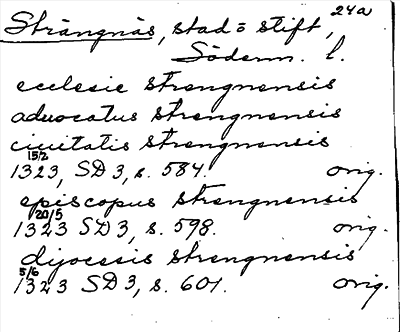 24a
Strängnäs, stad o stift,
Söderm. l.
ecclesie strengnensis
aduocatus strengnensis
ciuitatis strengnensis
15/2
1323, SD 3, s. 584. orig.
episcopus strengnensis
20/5
1323 SD 3, s. 598. orig.
dyocesis strengnensis
5/6
1323 SD 3, s. 601. orig.